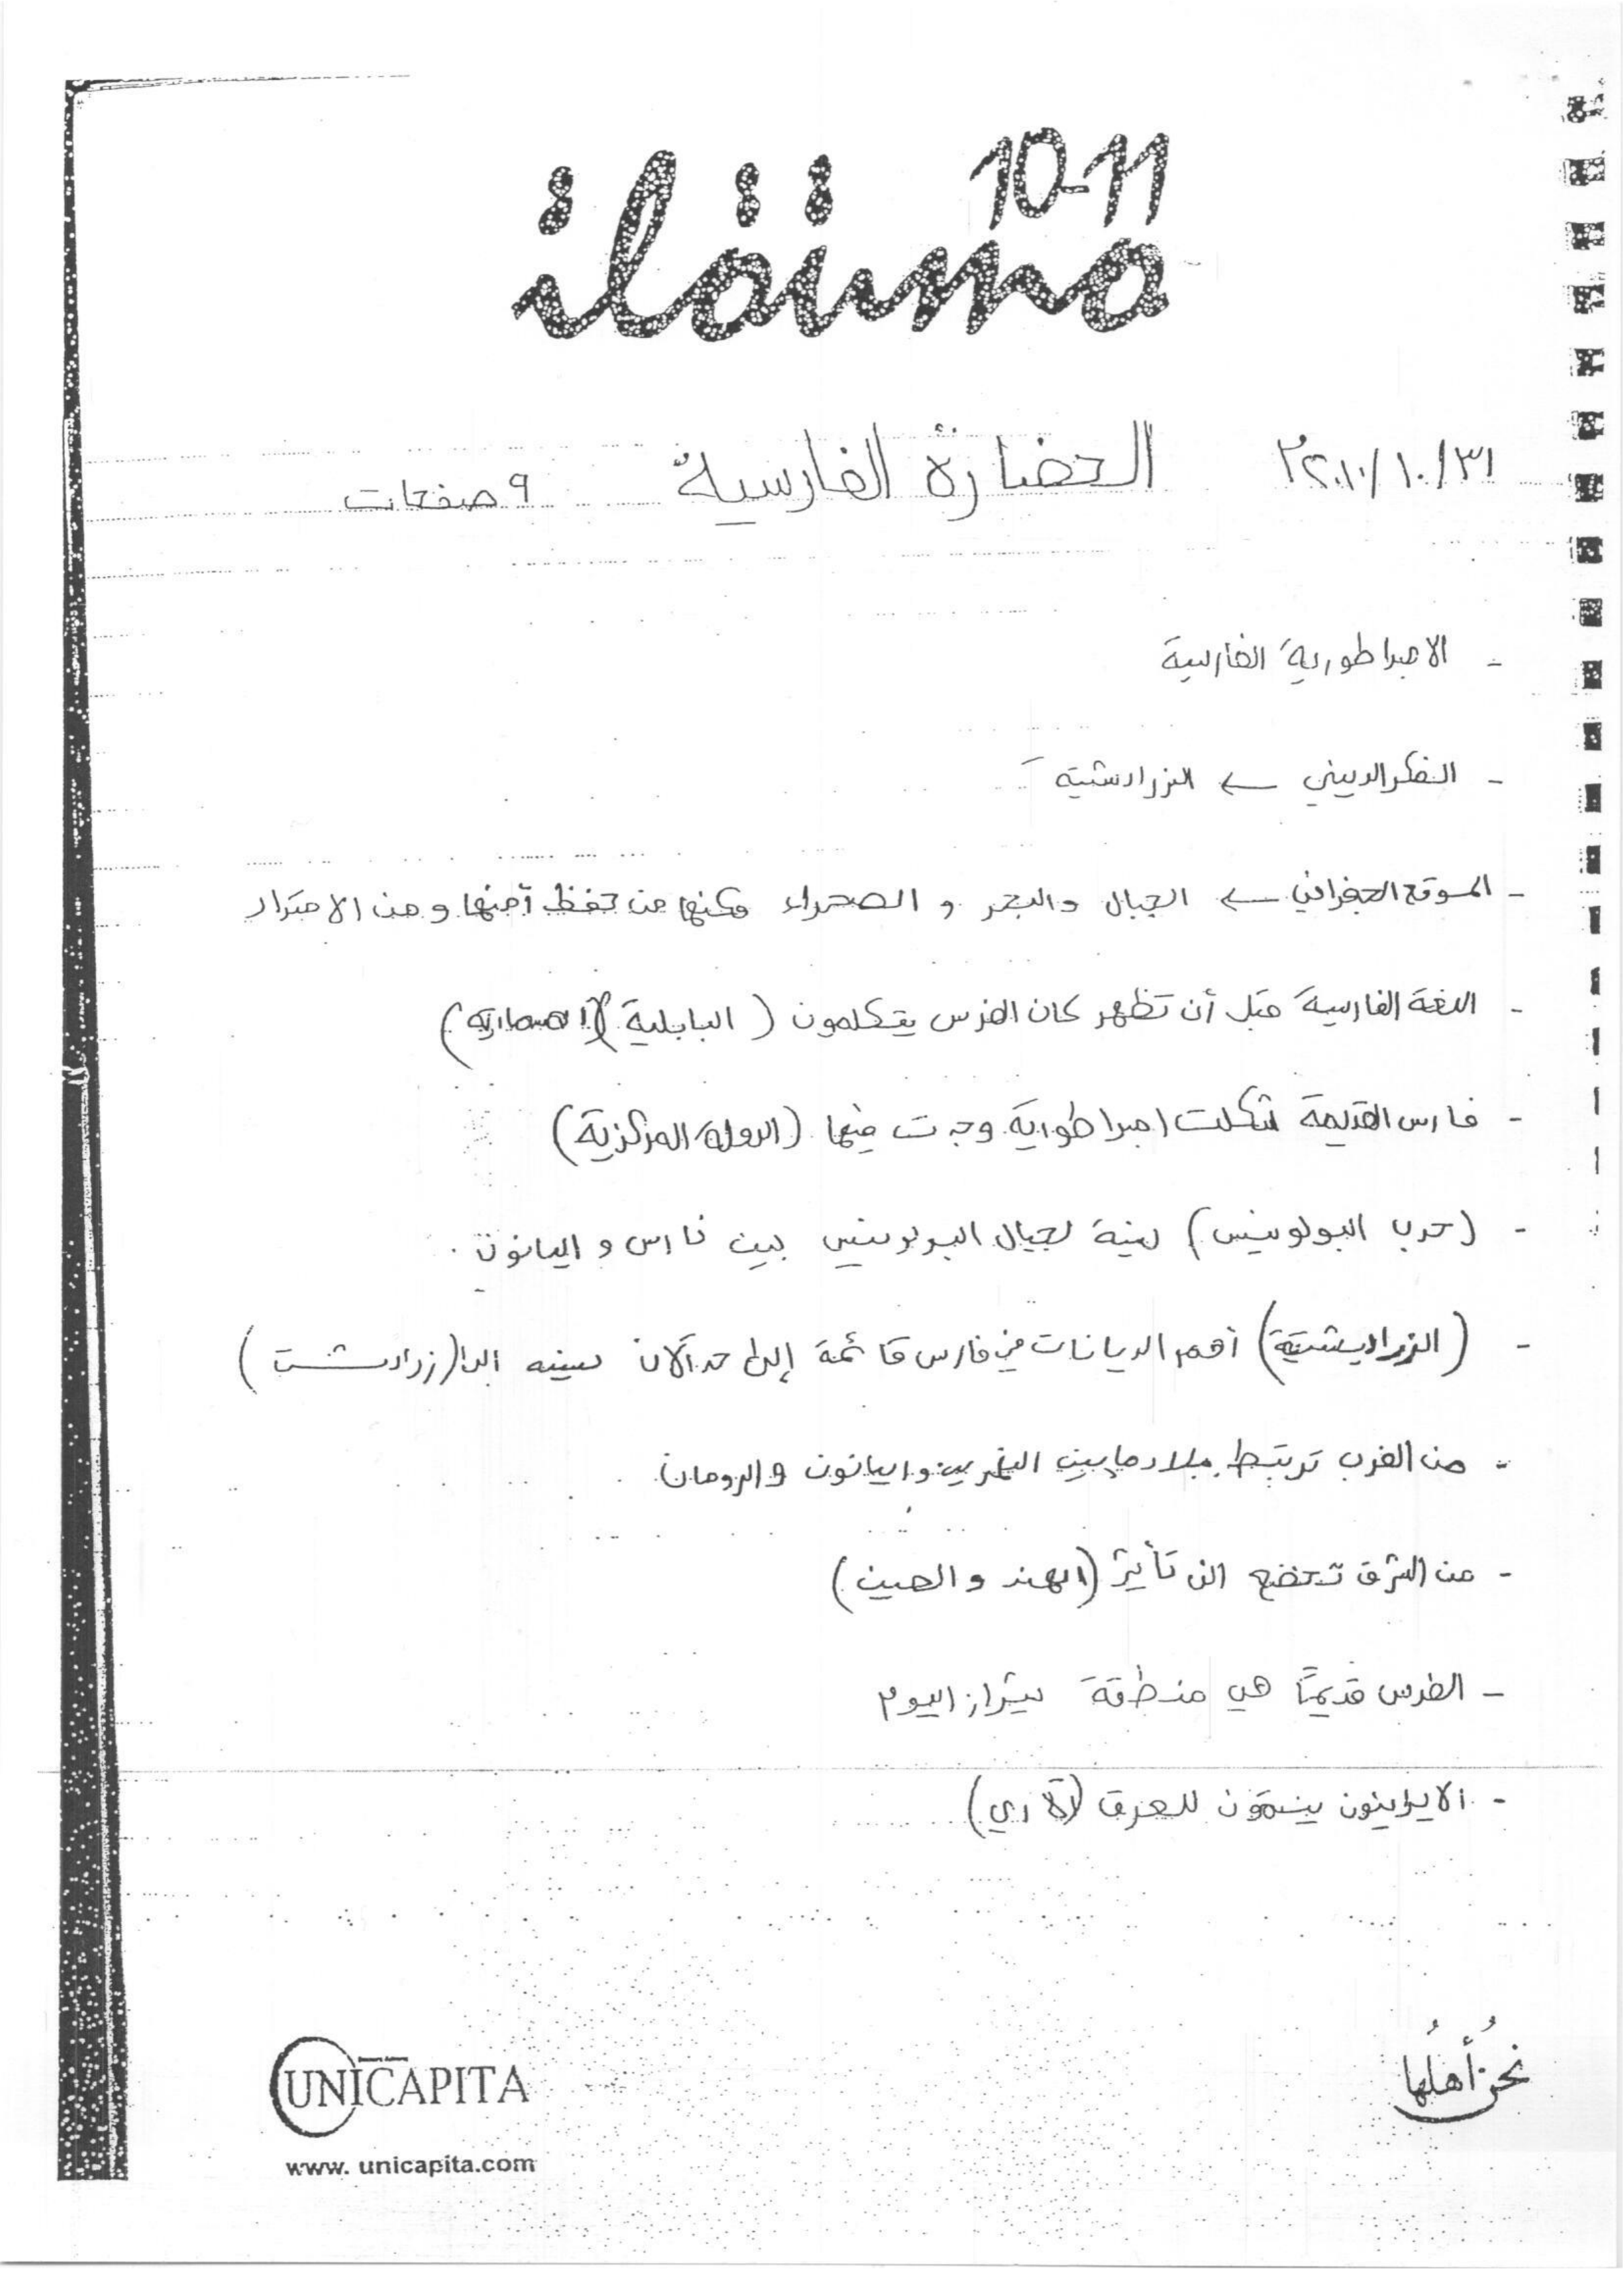 10-11
ilöüma
٢٠١٠/١٠/٣١ الحضارة الفارسية ٩ صفحات
- الامبراطورية الفارسية
- الفكر الديني ← الزرادشتية
- الموقع الجغرافي ← الجبال والبحر و الصحراء مكنها من حفظ أمنها و من الامتداد
- اللغة الفارسية قبل أن تظهر كان الفرس يتكلمون ( البابلية )
- فارس القديمة شكلت امبراطورية وجدت فيها (الدولة المركزية)
- (حرب البولونيس) نسبة لجبال البولونيس بين فارس و اليونان .
- (الزراديشتية) أهم الديانات في فارس قائمة إلى حد الآن نسبه الى (زرادشت)
- من الغرب ترتبط ببلاد ما بين النهرين واليونان والرومان
- من الشرق تخضع الى تأثير (الهند و الصين)
- الفرس قديمًا هي منطقة شيراز اليوم
- الايرانيون ينتمون للعرق (الآري)
نحنُ أهلُها
UNICAPITA
www. unicapita.com